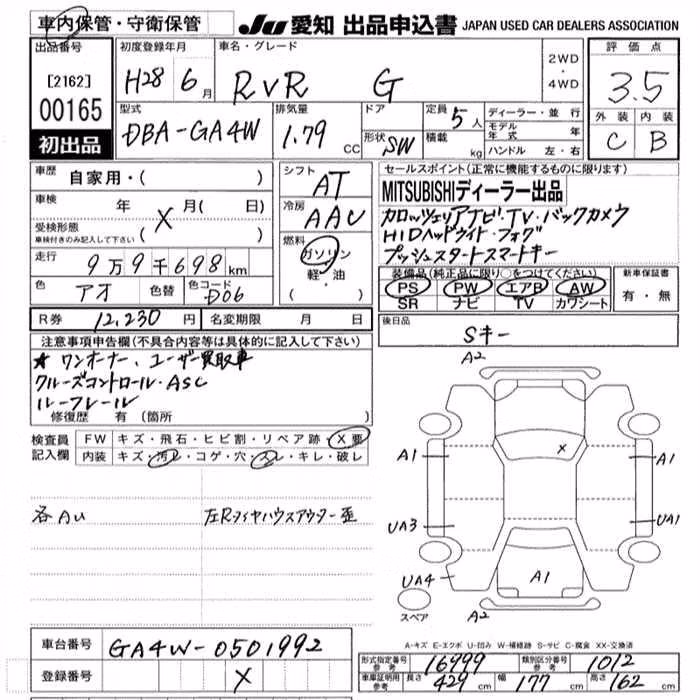 車内保管・守衛保管
JU 愛知 出品申込書 JAPAN USED CAR DEALERS ASSOCIATION
出品番号 初度登録年月 車名・グレード 評価点
[2162] H28 6月 RVR G 2WD・4WD 3.5
00165 型式 排気量 ドア 定員 5人 ディーラー・並行 外装 内装
初出品 DBA-GA4W 1.79 CC 形状 SW 積載 kg モデル年式 年 C B
ハンドル 左・右
車歴 自家用・( ) シフト AT セールスポイント(正常に機能するものに限ります)
車検 年 X 月( 日) 冷房 AAC MITSUBISHIディーラー出品
受検形態 ( ) カロッツェリアナビ・TV・バックカメラ
車検付きのみ記入して下さい 燃料 HIDヘッドライト・フォグ
走行 9万9千698km ガソリン プッシュスタートスマートキー
軽・油 装備品(純正品に限り○をつけてください) 新車保証書
色 アオ 色替 色コード D06 ( ) PS PW エアB AW 有・無
SR ナビ TV カワシート
R券 12,230円 名変期限 月 日 後日品
Sキー
注意事項申告欄(不具合内容等は具体的に記入して下さい)
★ワンオーナー、ユーザー買取車
クルーズコントロール・ASC
ルーフレール
修復歴 有(箇所 )
検査員 FW キズ・飛石・ヒビ割・リペア跡・X要
記入欄 内装 キズ・汚レ・コゲ・穴・スレ・キレ・破レ
各AU 左Rタイヤハウスアウター歪
A2
X
A1 A1
UA3 UA1
UA4 A1
スペア A2
A-キズ E-エクボ U-凹み W-補修跡 S-サビ C-腐食 XX-交換済
車台番号 GA4W-0501992
登録番号 X
形式指定番号 参考 16999 類別区分番号 参考 1012
車庫証明用 参考 長さ 429cm 幅 177cm 高さ 162cm